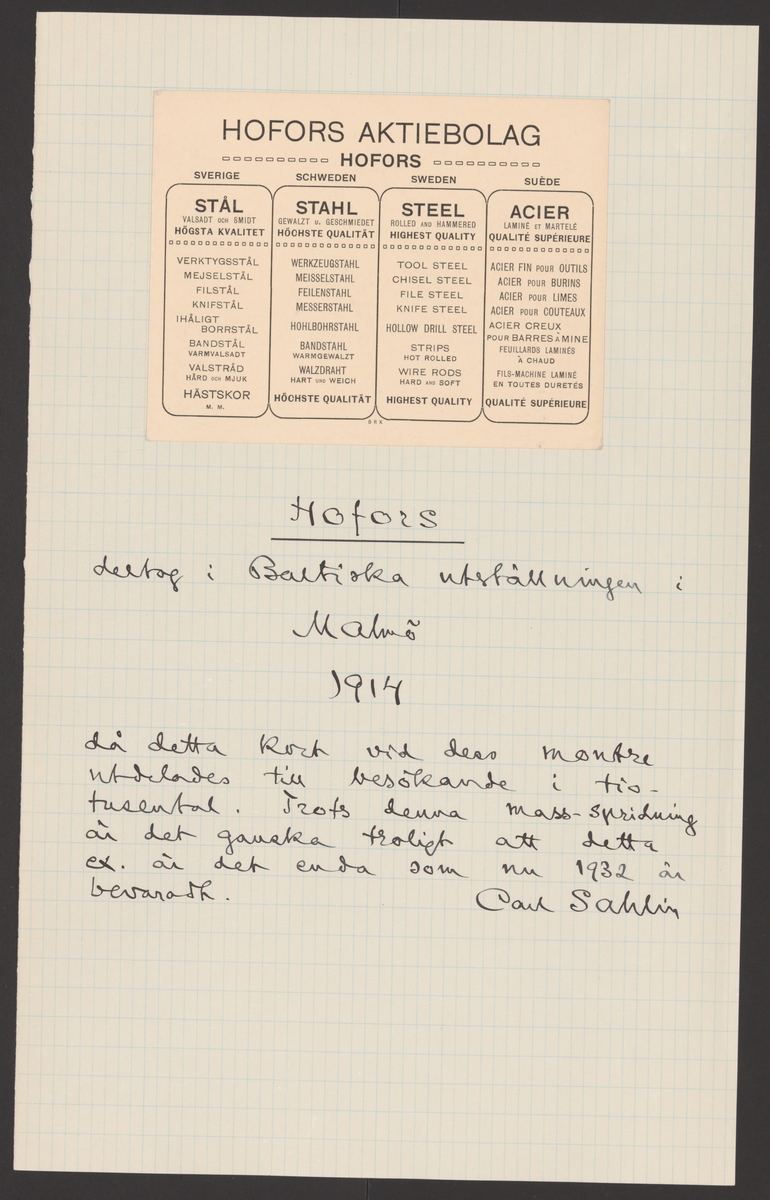 HOFORS AKTIEBOLAG
HOFORS
SVERIGE
STÅL
VALSADT OCH SMIDT
HÖGSTA KVALITET
VERKTYGSSTÅL
MEJSELSTÅL
FILSTÅL
KNIFSTÅL
IHÅLIGT
BORRSTÅL
BANDSTÅL
VARMVALSADT
VALSTRÅD
HÅRD OCH MJUK
HÄSTSKOR
M. M.
SCHWEDEN
STAHL
GEWALZT U. GESCHMIEDET
HÖCHSTE QUALITÄT
WERKZEUGSTAHL
MEISSELSTAHL
FEILENSTAHL
MESSERSTAHL
HOHLBOHRSTAHL
BANDSTAHL
WARMGEWALZT
WALZDRAHT
HART UND WEICH
HÖCHSTE QUALITÄT
SWEDEN
STEEL
ROLLED AND HAMMERED
HIGHEST QUALITY
TOOL STEEL
CHISEL STEEL
FILE STEEL
KNIFE STEEL
HOLLOW DRILL STEEL
STRIPS
HOT ROLLED
WIRE RODS
HARD AND SOFT
HIGHEST QUALITY
SUÈDE
ACIER
LAMINÉ ET MARTELÉ
QUALITÉ SUPÉRIEURE
ACIER FIN POUR OUTILS
ACIER POUR BURINS
ACIER POUR LIMES
ACIER POUR COUTEAUX
ACIER CREUX
POUR BARRES À MINE
FEUILLARDS LAMINÉS
À CHAUD
FILS-MACHINE LAMINÉ
EN TOUTES DURETÉS
QUALITÉ SUPÉRIEURE
B R K
Hofors
deltog i Baltiska utställningen i
Malmö
1914
då detta kort vid dess montre
utdelades till besökande i tio-
tusental. Trots denna mass-spridning
är det ganska troligt att detta
ex. är det enda som nu 1932 är
bevaradt. Carl Sahlin